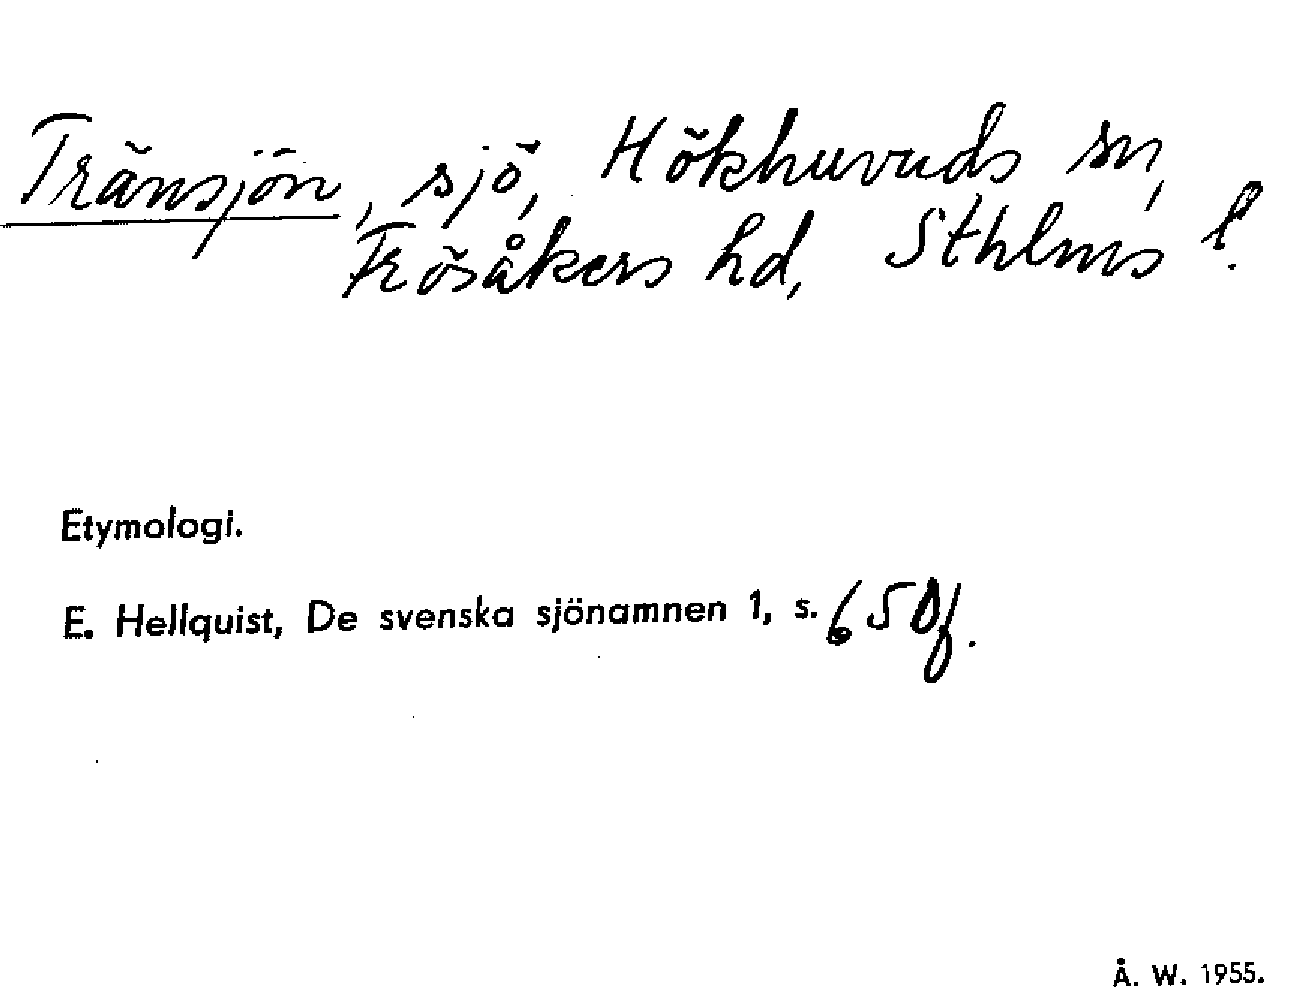 Tränsjön, sjö, Hökhuvuds sn,
Frösåkers hd, Sthlms l.
Etymologi.
E. Hellquist, De svenska sjönamnen 1, s. 650f.
Å. W. 1955.